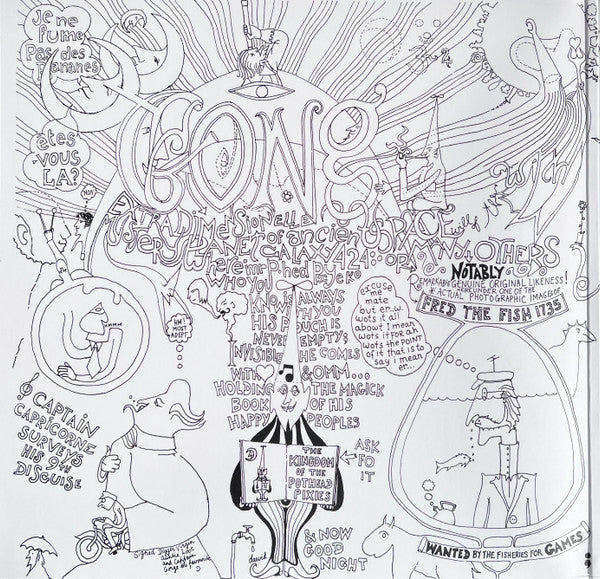 Je ne
fume
Pas des
Bananes
êtes
-vous
LA?
NON!
GONG
with
XTRADIMENSIONELLE
MYSERY PLANET of ancient SPACE
GALAXY 424: or MANY OTHERS
NOTABLY
REMARKABLY GENUINE ORIGINAL LIKENESS!
HEREUNDER ONE OF THE
ACTUAL PHOTOGRAPHIC IMAGES OF
FRED THE FISH 1735
WHO YOU
KNOW IS ALWAYS
WITH YOU
HIS POUCH IS
NEVER EMPTY;
INVISIBLE HE COMES
WITH & OMM...
HOLDING THE MAGICK
BOOK OF HIS
HAPPY PEOPLES
excuse
me
mate
but er..w.
wots it all
about I mean
wots it for an
wots the POINT
of it that is to
say i mean
er...
OMMM
OH!
MOST
ADEPT
CAPTAIN
CAPRICORNE
SURVEYS
HIS 9TH
DISGUISE
THE
KINGDOM
OF THE
POTHEAD
PIXIES
ASK
FO
IT
& NOW
GOOD
NIGHT
david
WANTED BY THE FISHERIES FOR GAMES!